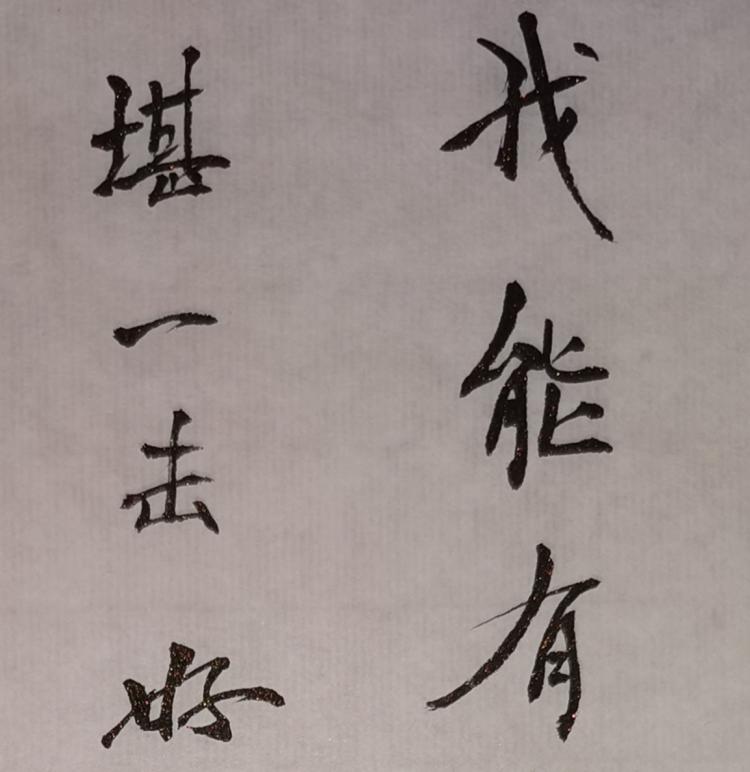 我能有
堪一击好